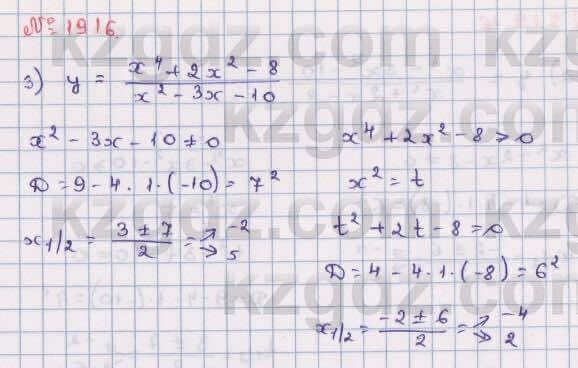 № 1916.
3) y = (x⁴ + 2x² - 8) / (x² - 3x - 10)
x² - 3x - 10 ≠ 0
D = 9 - 4 · 1 · (-10) = 7²
x₁/₂ = (3 ± 7) / 2 = ↗ -2 ↘ 5
x⁴ + 2x² - 8 > 0
x² = t
t² + 2t - 8 = 0
D = 4 - 4 · 1 · (-8) = 6²
x₁/₂ = (-2 ± 6) / 2 = ↗ -4 ↘ 2
kzgdz.com
kzgdz.com
kzgdz.com
kzgdz.com